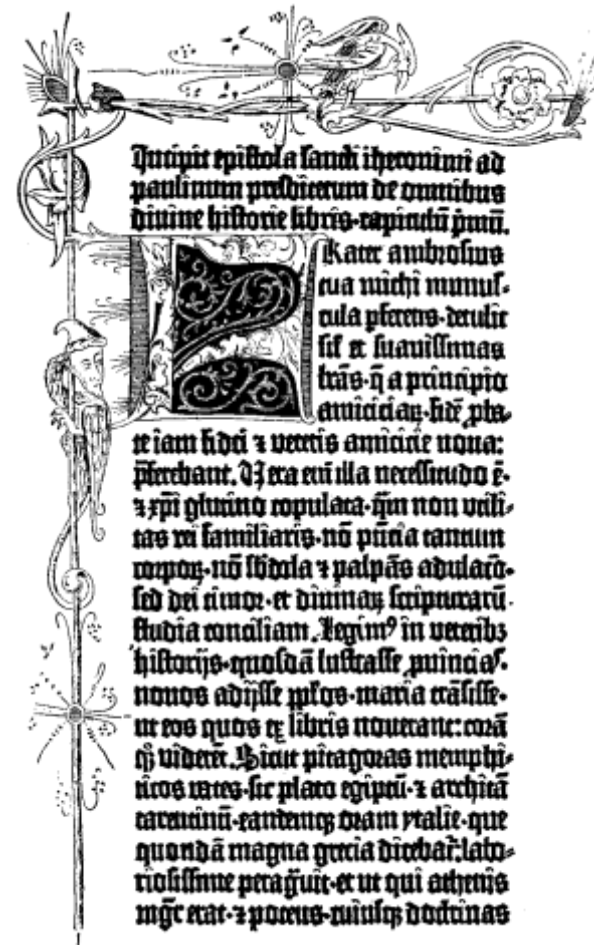 Incipit epistola sancti iheronimi ad
paulinum presbiterum de omnibus
diuine historie libris·capitulū p̄mū.
Frater ambrosius
tua michi munus-
cula ꝑferens·detulit
sił et suauissimas
lr̄as·q̄ a principio
amiciciaꝝ·fidē ꝓba-
te iam fidei ⁊ veteris amicicie noua:
p̄ferebant. Uera eni̅ illa necessitudo ē·
⁊ xp̄i glutino copulata·q̄m non utili-
tas rei familiaris·nō pn̄cia tantum
corpoꝝ·nō sb̄dola ⁊ palpās adulac̄o·
sed dei timor·et diuinaꝝ scripturarū
studia conciliant. Legimꝰ in veteribꝫ
historijs·quosdā lustrasse ꝓuincias·
nouos adijsse pp̄los·maria trāsisse·
ut eos quos ex libris nouerant: corā
qꝫ viderēt. Sicut pitagoras memphi-
ticos vates·sic plato egiptū·⁊ architā
tarentinū·eandemqꝫ oram ytalie·que
quondā magna grecia dicebat̄: labo-
riosissime peragrauit·et ut qui athenis
mgr̄ erat·⁊ potens·cuiusqꝫ doctrinas